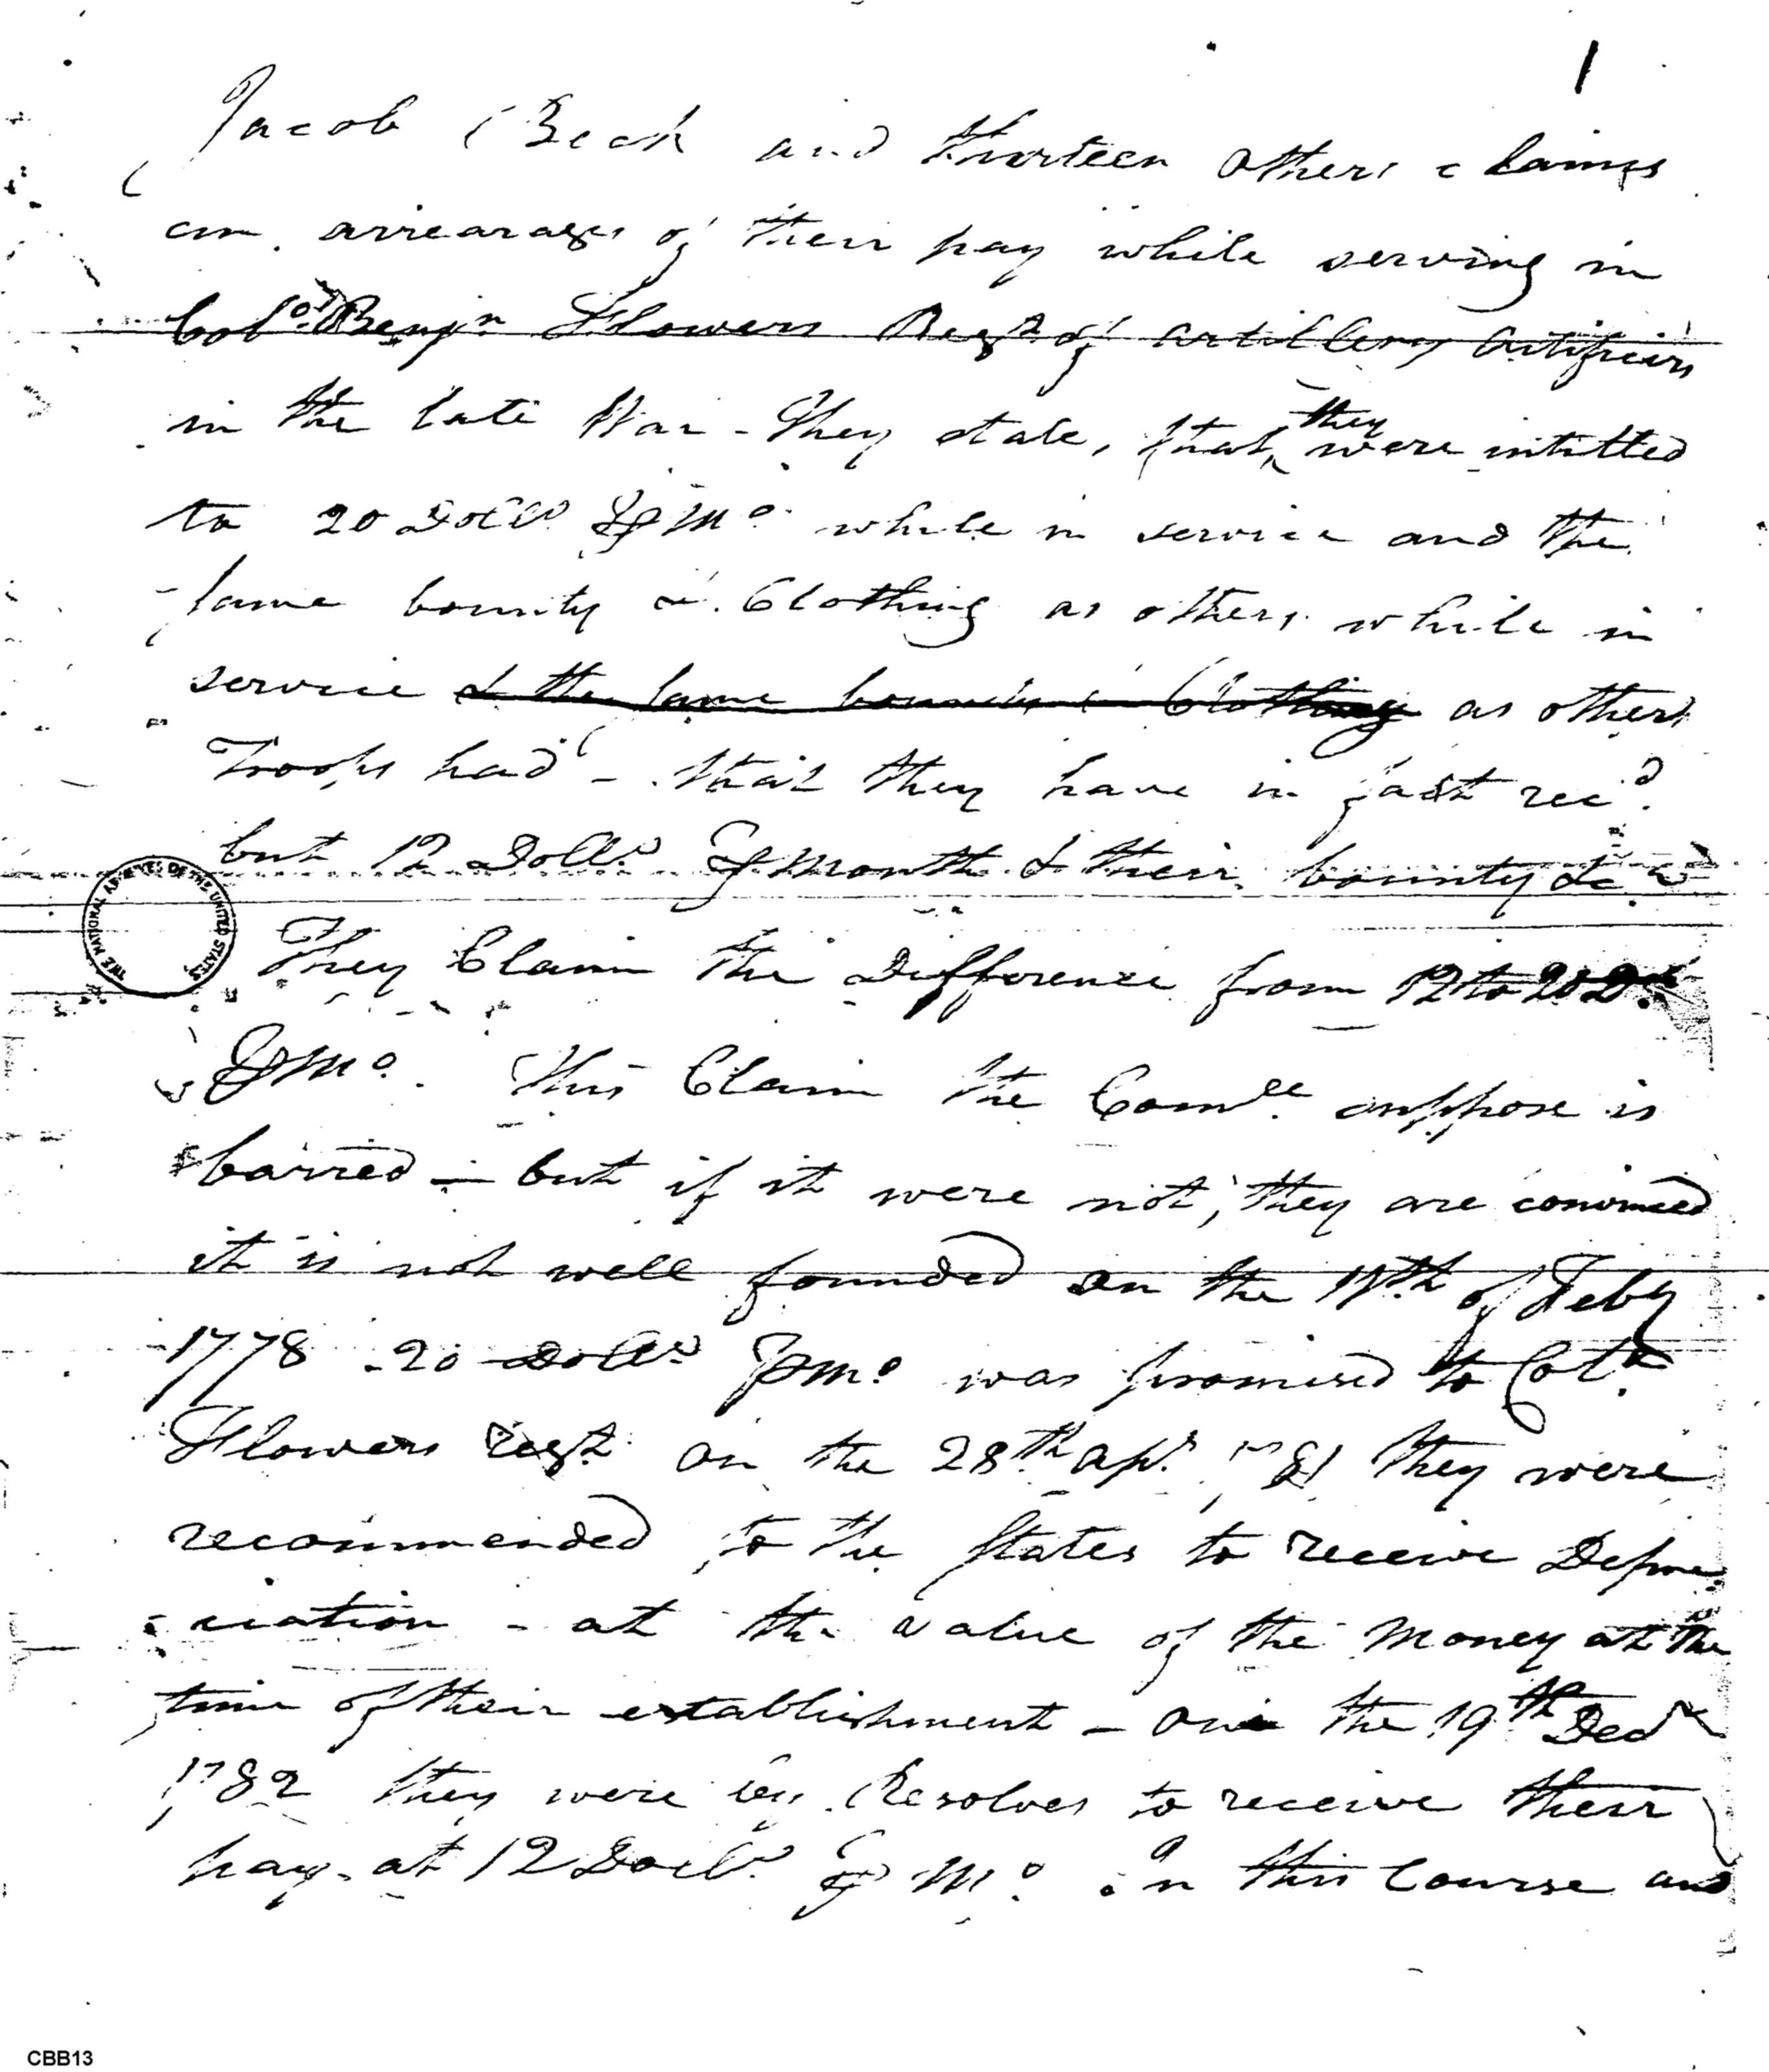 1
Jacob Beck and thirteen others claims
an arrearages of their pay while serving in
Colo. Benjn Flowers Regt. of artillery artificers
in the late War - They state, that they were intitled
to 20 Dolls. ⅌ Mo. while in service and the
same bounty & Clothing as others while in
service & the same bounty & Clothing as others
Troops had - that they have in fact recd.
but 12 Dolls. ⅌ month & their bounty &c
THE NATIONAL ARCHIVES OF THE UNITED STATES
They Claim the Difference from 12 to 20 Ds.
⅌ Mo. This Claim the Comee. suppose is
barred - but if it were not, they are convinced
it is not well founded on the 11th of Feby
1778 - 20 Dolls ⅌ mo. was promised to Col.
Flowers regt. on the 28th. apl. 1781 they were
recommended to the States to receive Depre
ciation - at the value of the money at the
time of their establishment - on the 19th Decr
1782 they were by Resolves to receive their
pay at 12 Dolls. ⅌ Mo. on this Course and
CBB13